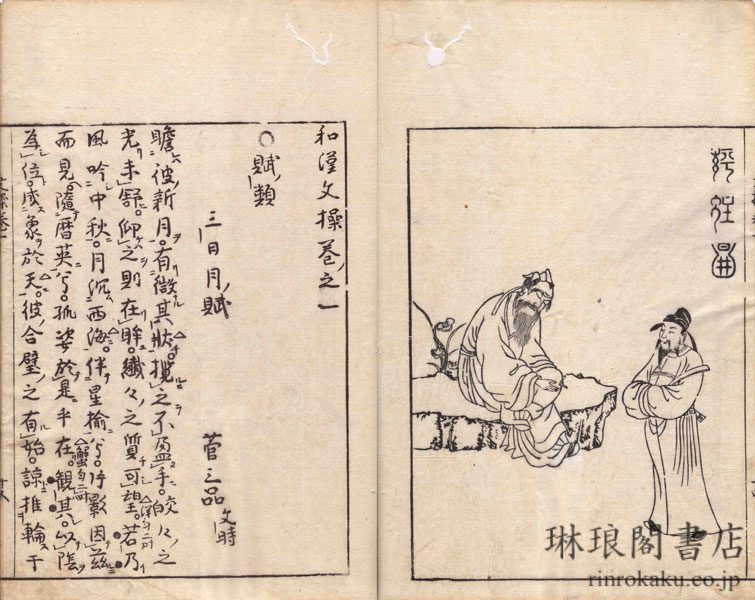 和漢文操卷之一
○賦類
三日月賦
菅三品文時
瞻彼新月。有微其狀。攬之不盈手。皎々之
光未舒。仰之則在眸。纖々之質可望。若乃
風吟中秋。月沉西海。伴星楡兮。片影因茲
而見。隨暦英兮。孤姿於是乎在。観其以陰
為位。成象於天。彼合璧之有始。諒推輪于
琳琅閣書店
rinrokaku.co.jp